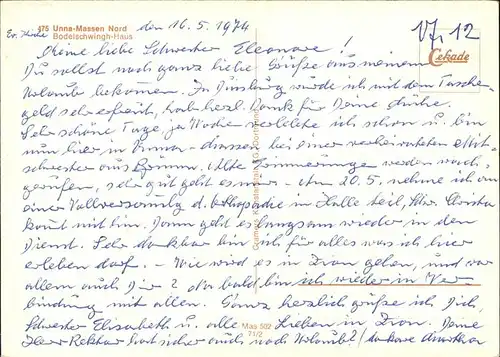 475 Unna-Massen Nord
Bodelschwingh-Haus
Ev. Kirche
den 16.5.1974
17,12
Cekade
Meine liebe Schwester Eleonore!
Du sollst noch ganz liebe Grüße aus meinem
Urlaub bekommen. In Duisburg wurde ich mit dem Taschen-
geld sehr erfreut, hab herzl. Dank für Deine
Sehr schöne Tage, ja Wochen verlebte ich schon u. bin
nun hier in Unna-Massen bei einer verheirateten Mit-
schwester aus Brünn. Alte Erinnerungen werden wach-
gerufen, sehr gut geht es mir - Am 20.5. nehme ich an
einer Vollversammlg d. in Halle teil, Schw. Christa
kommt mit hin. Dann geht es langsam wieder in den
Dienst. Sehr dankbar bin ich für alles was ich hier
erleben darf - Wie wird es in gehen, und vor
allem auch Dir? Na bald bin ich wieder in Ver-
bindung mit allen. Ganz herzlich grüße ich Dich,
Schwester Elisabeth u. alle Lieben in Deine
Herr Rektor hat sicher auch noch Urlaub?
Cramers Kunstanstalt KG, Dortmund
Mas 502
71/2